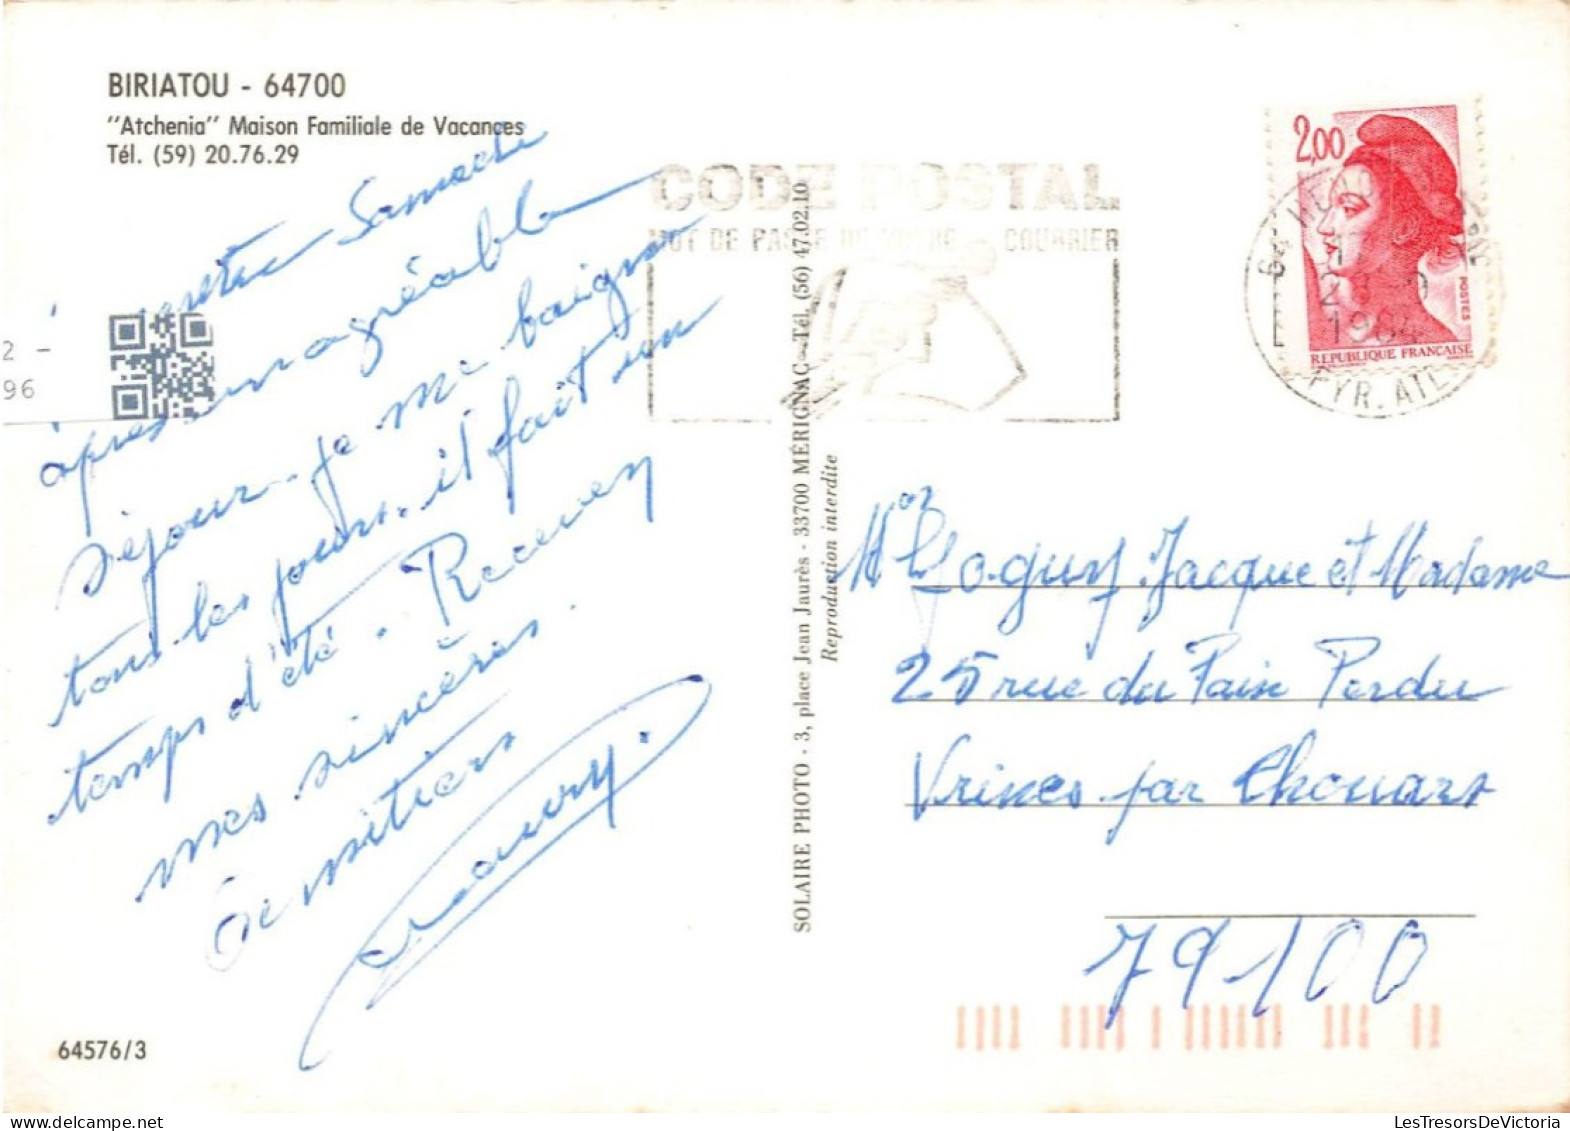 BIRIATOU - 64700
"Atchenia" Maison Familiale de Vacances
Tél. (59) 20.76.29
Samedi
après un agréable
séjour - je me baigne
tous les jours. il fait un
temps d'été. Recevez
mes sincères
Amitiers
64576/3
2 -
96
SOLAIRE PHOTO - 3, place Jean Jaurès - 33700 MÉRIGNAC - Tél. (56) 47.02.10
Reproduction interdite
CODE POSTAL
MOT DE PASSE DE VOTRE COURRIER
2,00
POSTES
REPUBLIQUE FRANÇAISE
64
1984
PYR. ATL
Jacque et Madame
25 rue du Pain Perdu
Vrines par Thouars
79100
LesTresorsDeVictoria
delcampe.net